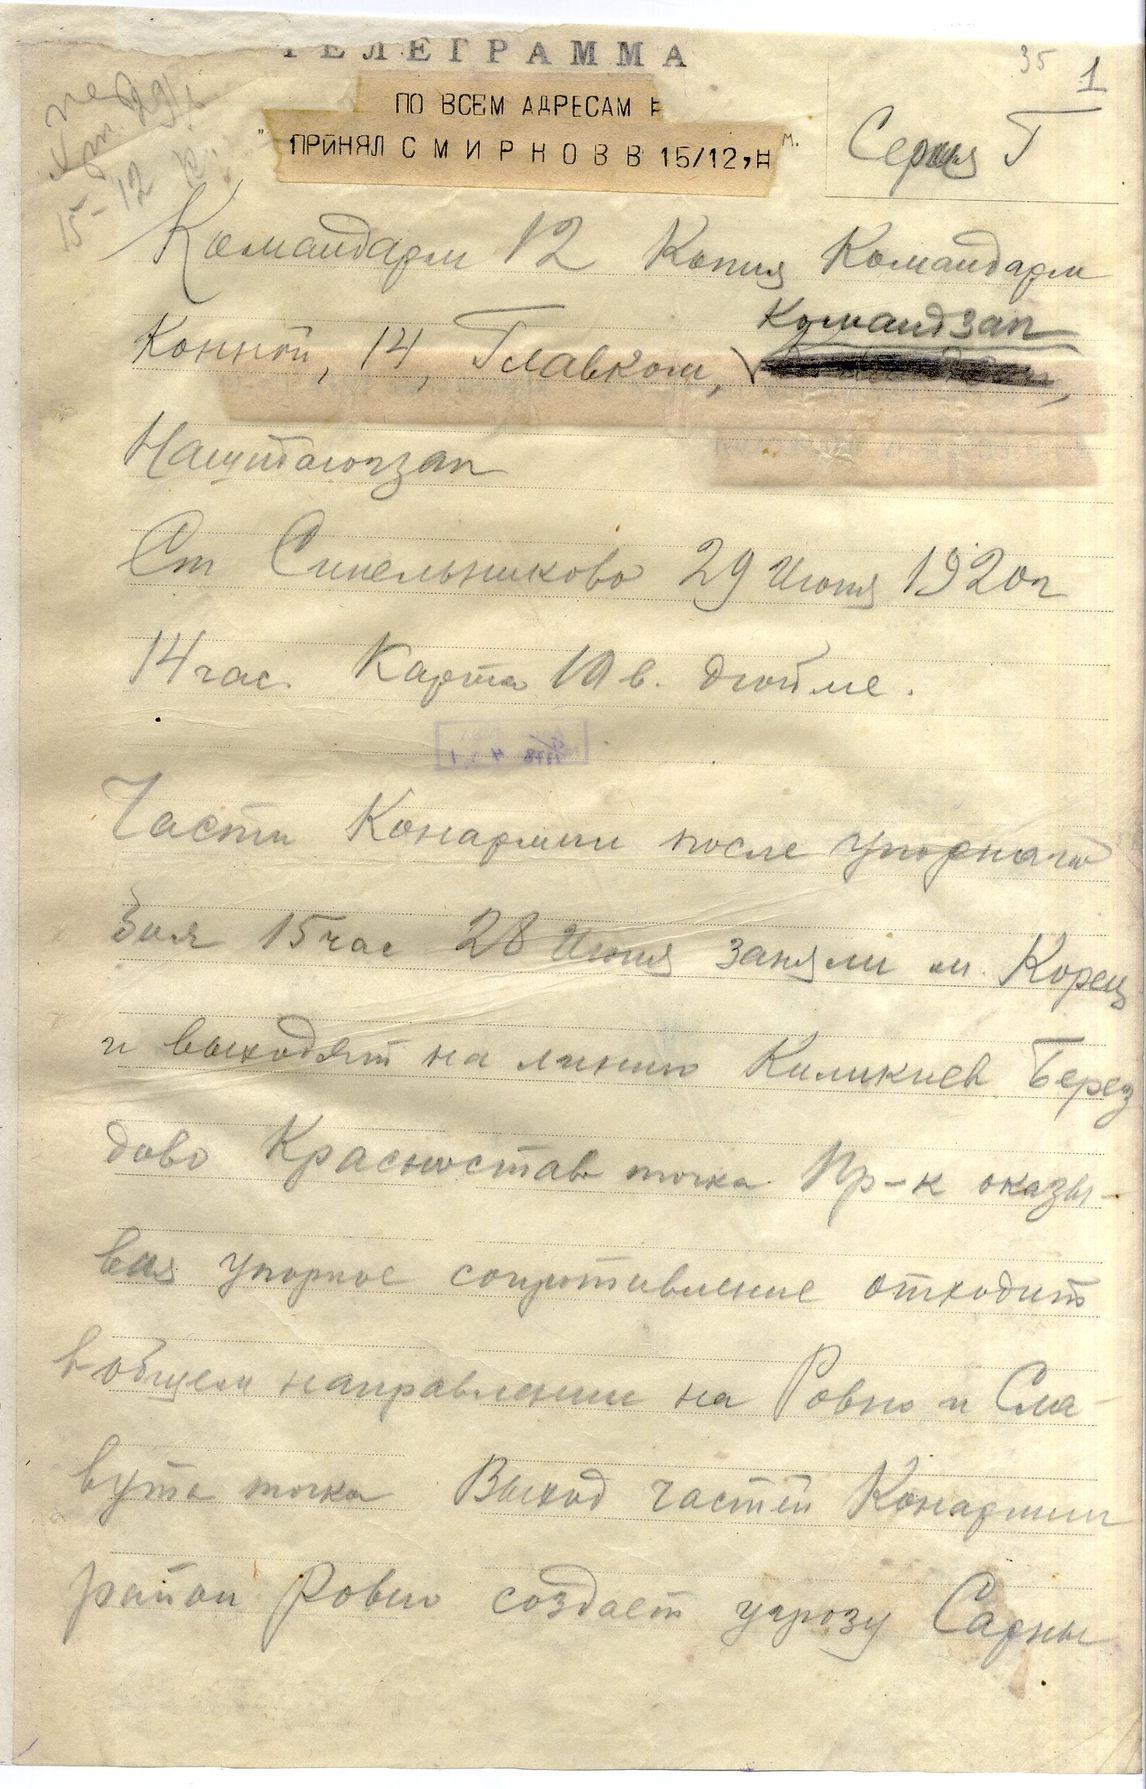 ТЕЛЕГРАММА
35
1
ПО ВСЕМ АДРЕСАМ
ПРИНЯЛ СМИРНОВ В 15/12,
м.
Серия Г
15-12
Командарм 12 Копия Командарм
Командзап
Конной, 14, Главком,
Наштаюгзап
Ст Синельниково 29 Июня 1920г
14 час. Карта 10 в. дюйме.
Части Конармии после упорнаго
боя 15 час 28 Июня заняли м. Корец
и выходят на линию Киликиев Берез
дово Красностав точка Пр-к оказы-
вая упорное сопротивление отходит
в общем направлении на Ровно и Сла-
вута точка Выход частей Конармии
район Ровно создает угрозу Сарны